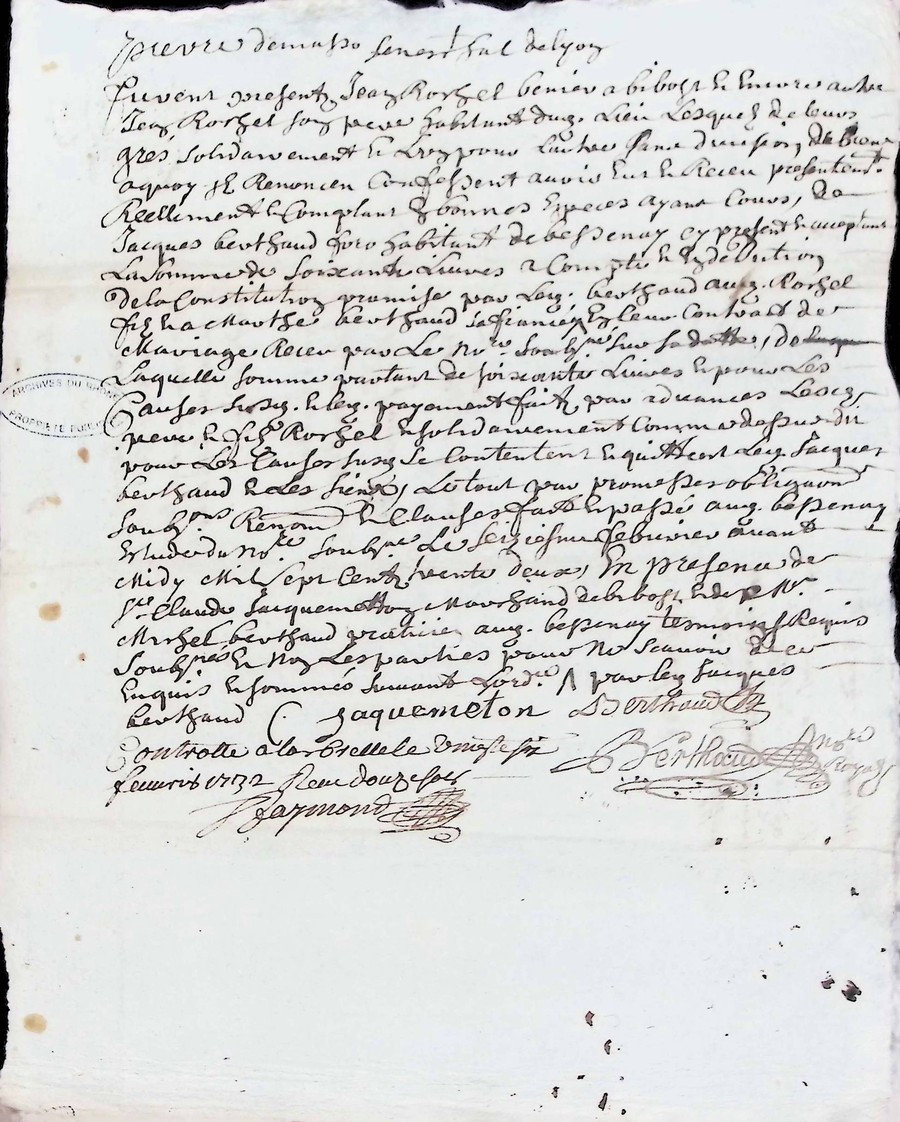 pierre demasso senechal delyon
furent presents Jean Rochel benier a bibost et Encore autre
Jean Rochel son pere habitant dud. Lieu Lesquels de leurs
grés solidairement et Lun pour Lautre sans division
aquoy ils Renoncen Confessent avoir Eu et Receu presentement
Reellement et Comptant En bonnes Especes ayant Cours, de
Jacques berthaud habitant de bessenay cy present et acceptant
La somme de soixante Livres a Compte et En dedution
de la Constitution promise par Led. berthaud aud. Rochel
fils et a Marthe berthaud sa fiancée En leur Contract de
Mariage Receu par Le Nore. soubsne. sur sa datte, de
Laquelle somme partant de soixante Livres et pour Les
Causes susd. et led. payement fait par advances Lesd.
pere et fils Rochel solidairement Comme dessus dit
pour Les Causes susd. se Contentent En quittent Led. Jacques
berthaud et Les siens, Le tout par promesses obligaon
soubmons Renons et Clauses fait et passé aud. bessenay
Estude du Nore soubsne Le seiziesme febvrier avant
Midy Mil sept Cents trente deux, En presence de
sr. Claude Jacquemetton Marchand de bibost et de Mr.
Michel berthaud praticien aud. bessenay tesmoins Requis
soubsnes et Non Les parties pour Ne scavoir de ce
Enquis et sommés suivant Lordce. / par led Jacques
berthaud C Jaquemeton Berthaud
Controllé a larbrelle le vingt six Berthaud nore royal
fevrier 1732 Receu douze sols
Raymond
ARCHIVES DU
PROPRIETE PUBLIQUE